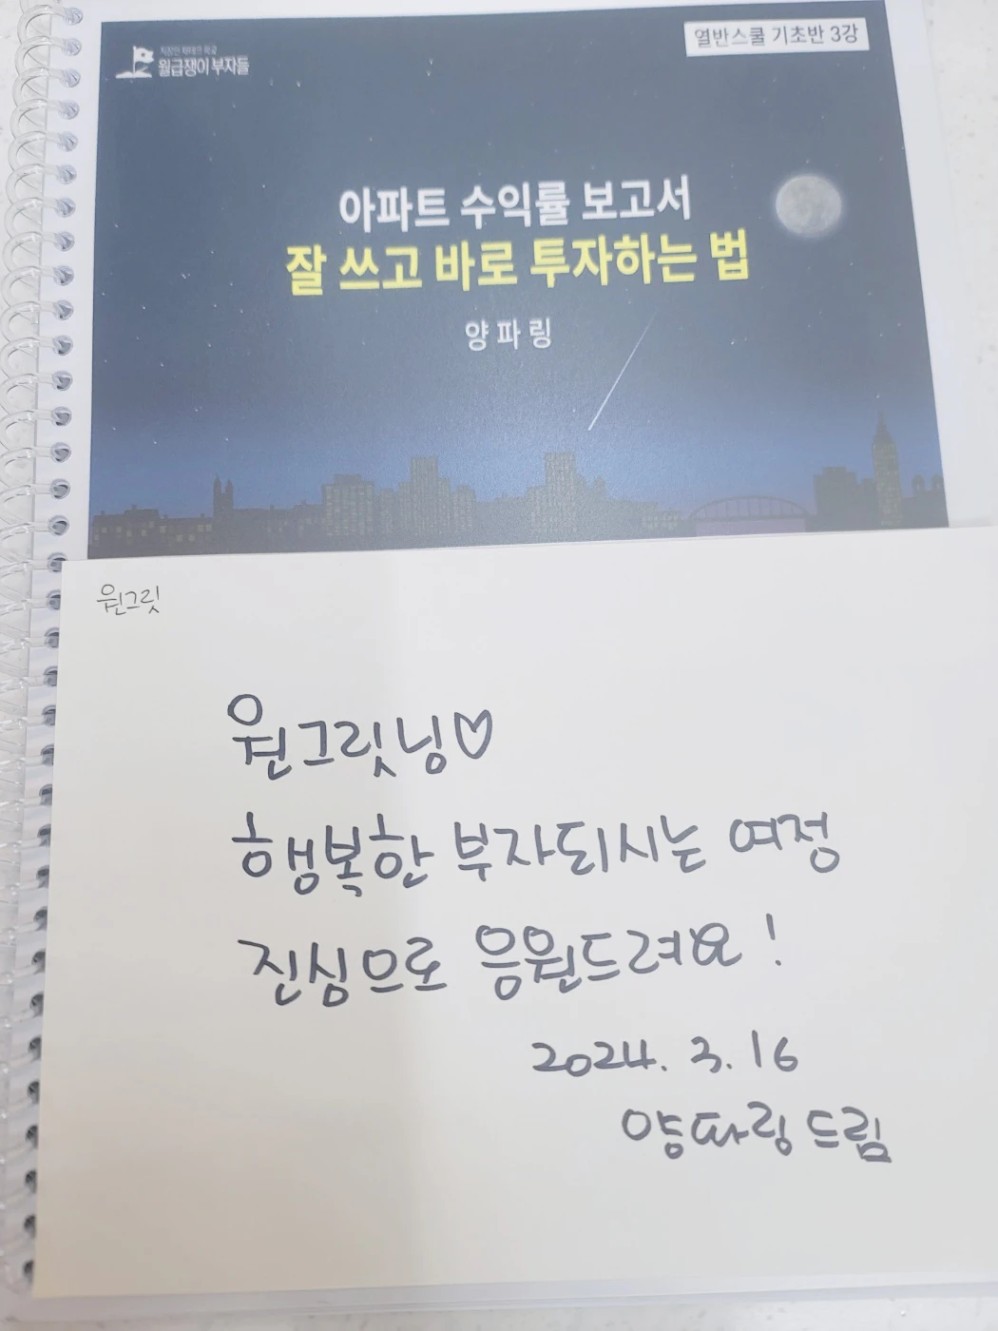 직장인 재테크 학교
월급쟁이부자들
열반스쿨 기초반 3강
아파트 수익률 보고서
잘 쓰고 바로 투자하는 법
양파링
원그릿
원그릿님♡
행복한 부자되시는 여정
진심으로 응원드려요!
2024. 3. 16
양파링 드림